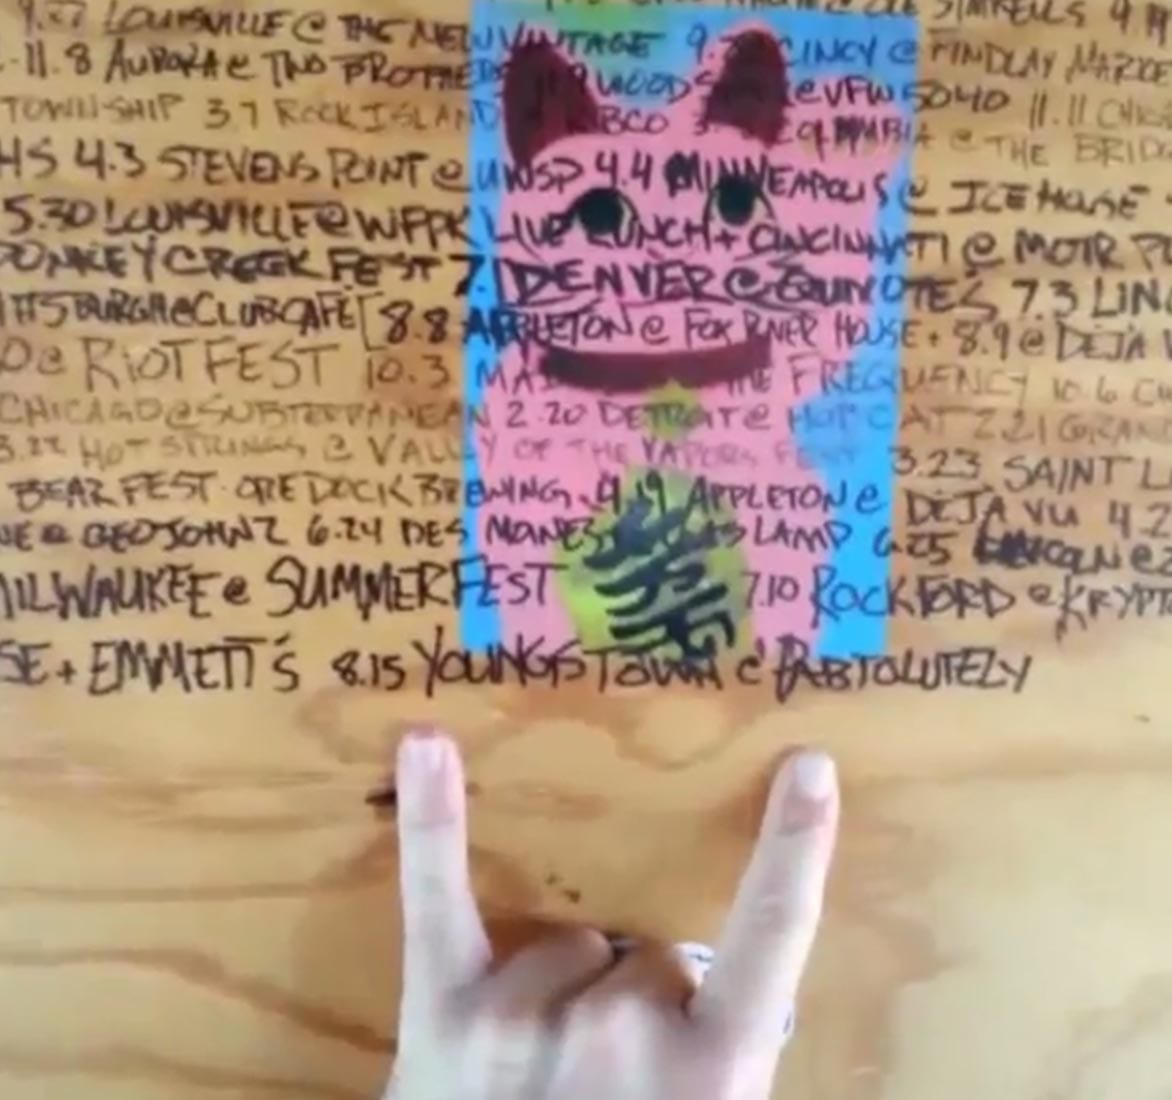 9.27 LOUISVILLE @ THE NEW VINTAGE 9. CINCY @ FINDLAY
11.8 AURORA @ TWO BROTHERS @ VFW 5040 11.11
TOWNSHIP 3.7 ROCK ISLAND @ RIBCO 3. @ THE
HS 4.3 STEVENS POINT @ UWSP 4.4 MINNEAPOLIS @ ICE HOUSE
5.30 LOUISVILLE @ WFPK LIVE LUNCH + CINCINNATI @ MOTR
DONKEY CREEK FEST 7.1 DENVER @ 7.3 LIN
ITTSBURGH @ CLUB CAFE [8.8 APPLETON @ FOX RIVER HOUSE + 8.9 @ DEJA V
O @ RIOT FEST 10.3 THE FREQUENCY 10.6
CHICAGO @ SUBTERRANEAN 2.20 DETROIT @ HOP CAT 2.21 GRAN
3.22 HOT STRINGS @ VALLEY OF THE VAPORS FEST 3.23 SAINT L
BEAR FEST · ORE DOCK BREWING 4.19 APPLETON @ DEJA VU 4.2
NE @ GEOJOHNZ 6.24 DES MOINES LAMP 6.25
MILWAUKEE @ SUMMERFEST 7.10 ROCKFORD @ KRYPT
SE + EMMETT'S 8.15 YOUNGSTOWN @ PABTOLUTELY